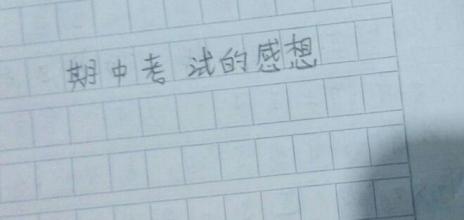 期中考试的感想